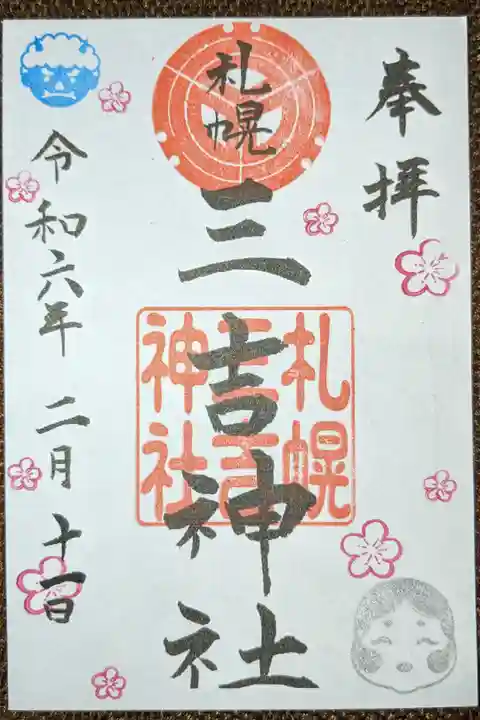 奉拝
札幌
三吉神社
札幌
三吉
神社
令和六年 二月 十一日